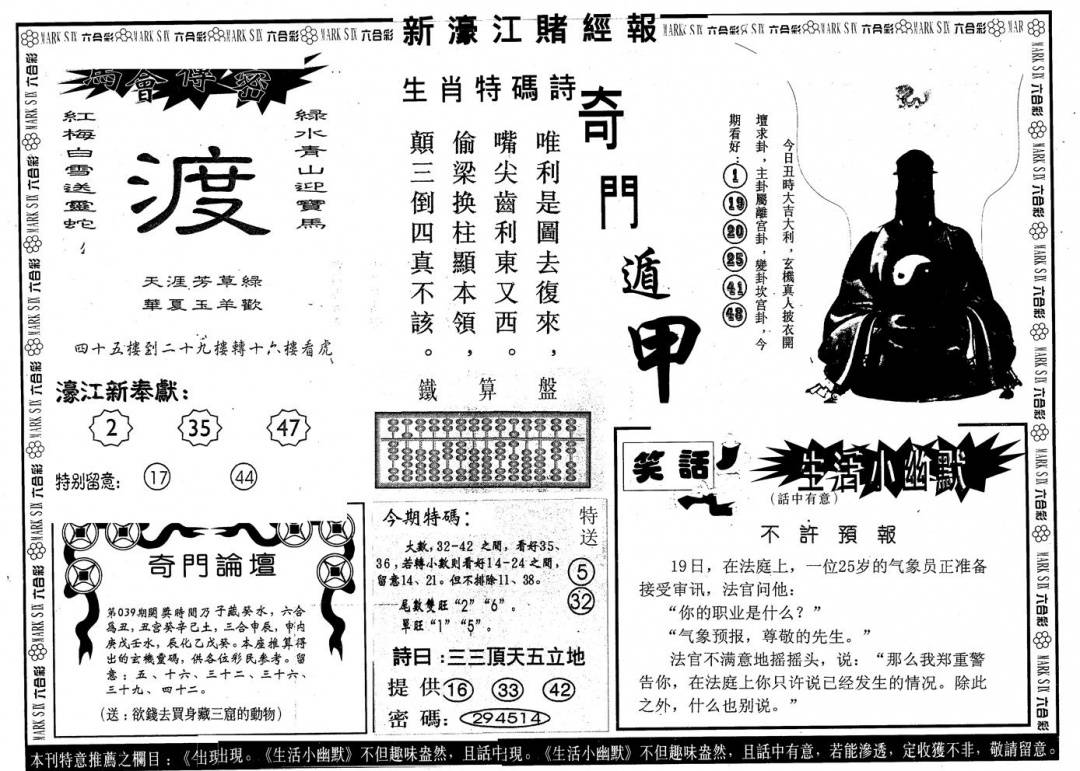 新濠江賭經報
馬會傳密
綠水青山迎寶馬
渡
紅梅白雪送靈蛇
天涯芳草綠
華夏玉羊歡
四十五樓到二十九樓轉十六樓看虎
濠江新奉獻：
2 35 47
特别留意： 17 44
生肖特碼詩
唯利是圖去復來，
嘴尖齒利東又西。
偷梁换柱顯本領，
顛三倒四真不該。
鐵算盤
奇門遁甲
今日丑時大吉大利，玄機真人披衣開
壇求卦，主卦屬離宫卦，變卦坎宫卦，今
期看好：1 19 20 25 41 48
奇門論壇
第039期開獎時間乃子藏癸水，六合
為丑，丑宫癸辛己土，三合申辰，申内
庚戊壬水，辰化乙戊癸。本座推算得
出的玄機靈碼，供各位彩民參考。留
意：五、十六、三十二、三十六、
三十九、四十二。
（送：欲錢去買身藏三窟的動物）
今期特碼：
大數，32-42 之間，看好35、
36，若轉小數則看好14-24之間，
留意14、21。但不排除11、38。
尾數雙旺“2”“6”。
單旺“1”“5”。
特送
5
32
詩曰：三三頂天五立地
提供 16 33 42
密碼：294514
笑話
生活小幽默
（話中有意）
不許預報
19日，在法庭上，一位25岁的气象员正准备
接受审讯，法官问他：
“你的职业是什么？”
“气象预报，尊敬的先生。”
法官不满意地摇摇头，说：“那么我郑重警
告你，在法庭上你只许说已经发生的情况。除此
之外，什么也别说。”
本刊特意推薦之欄目：《生活小幽默》不但趣味盎然，且話中有意，若能滲透，定收獲不非，敬請留意。
MARK SIX 六合彩